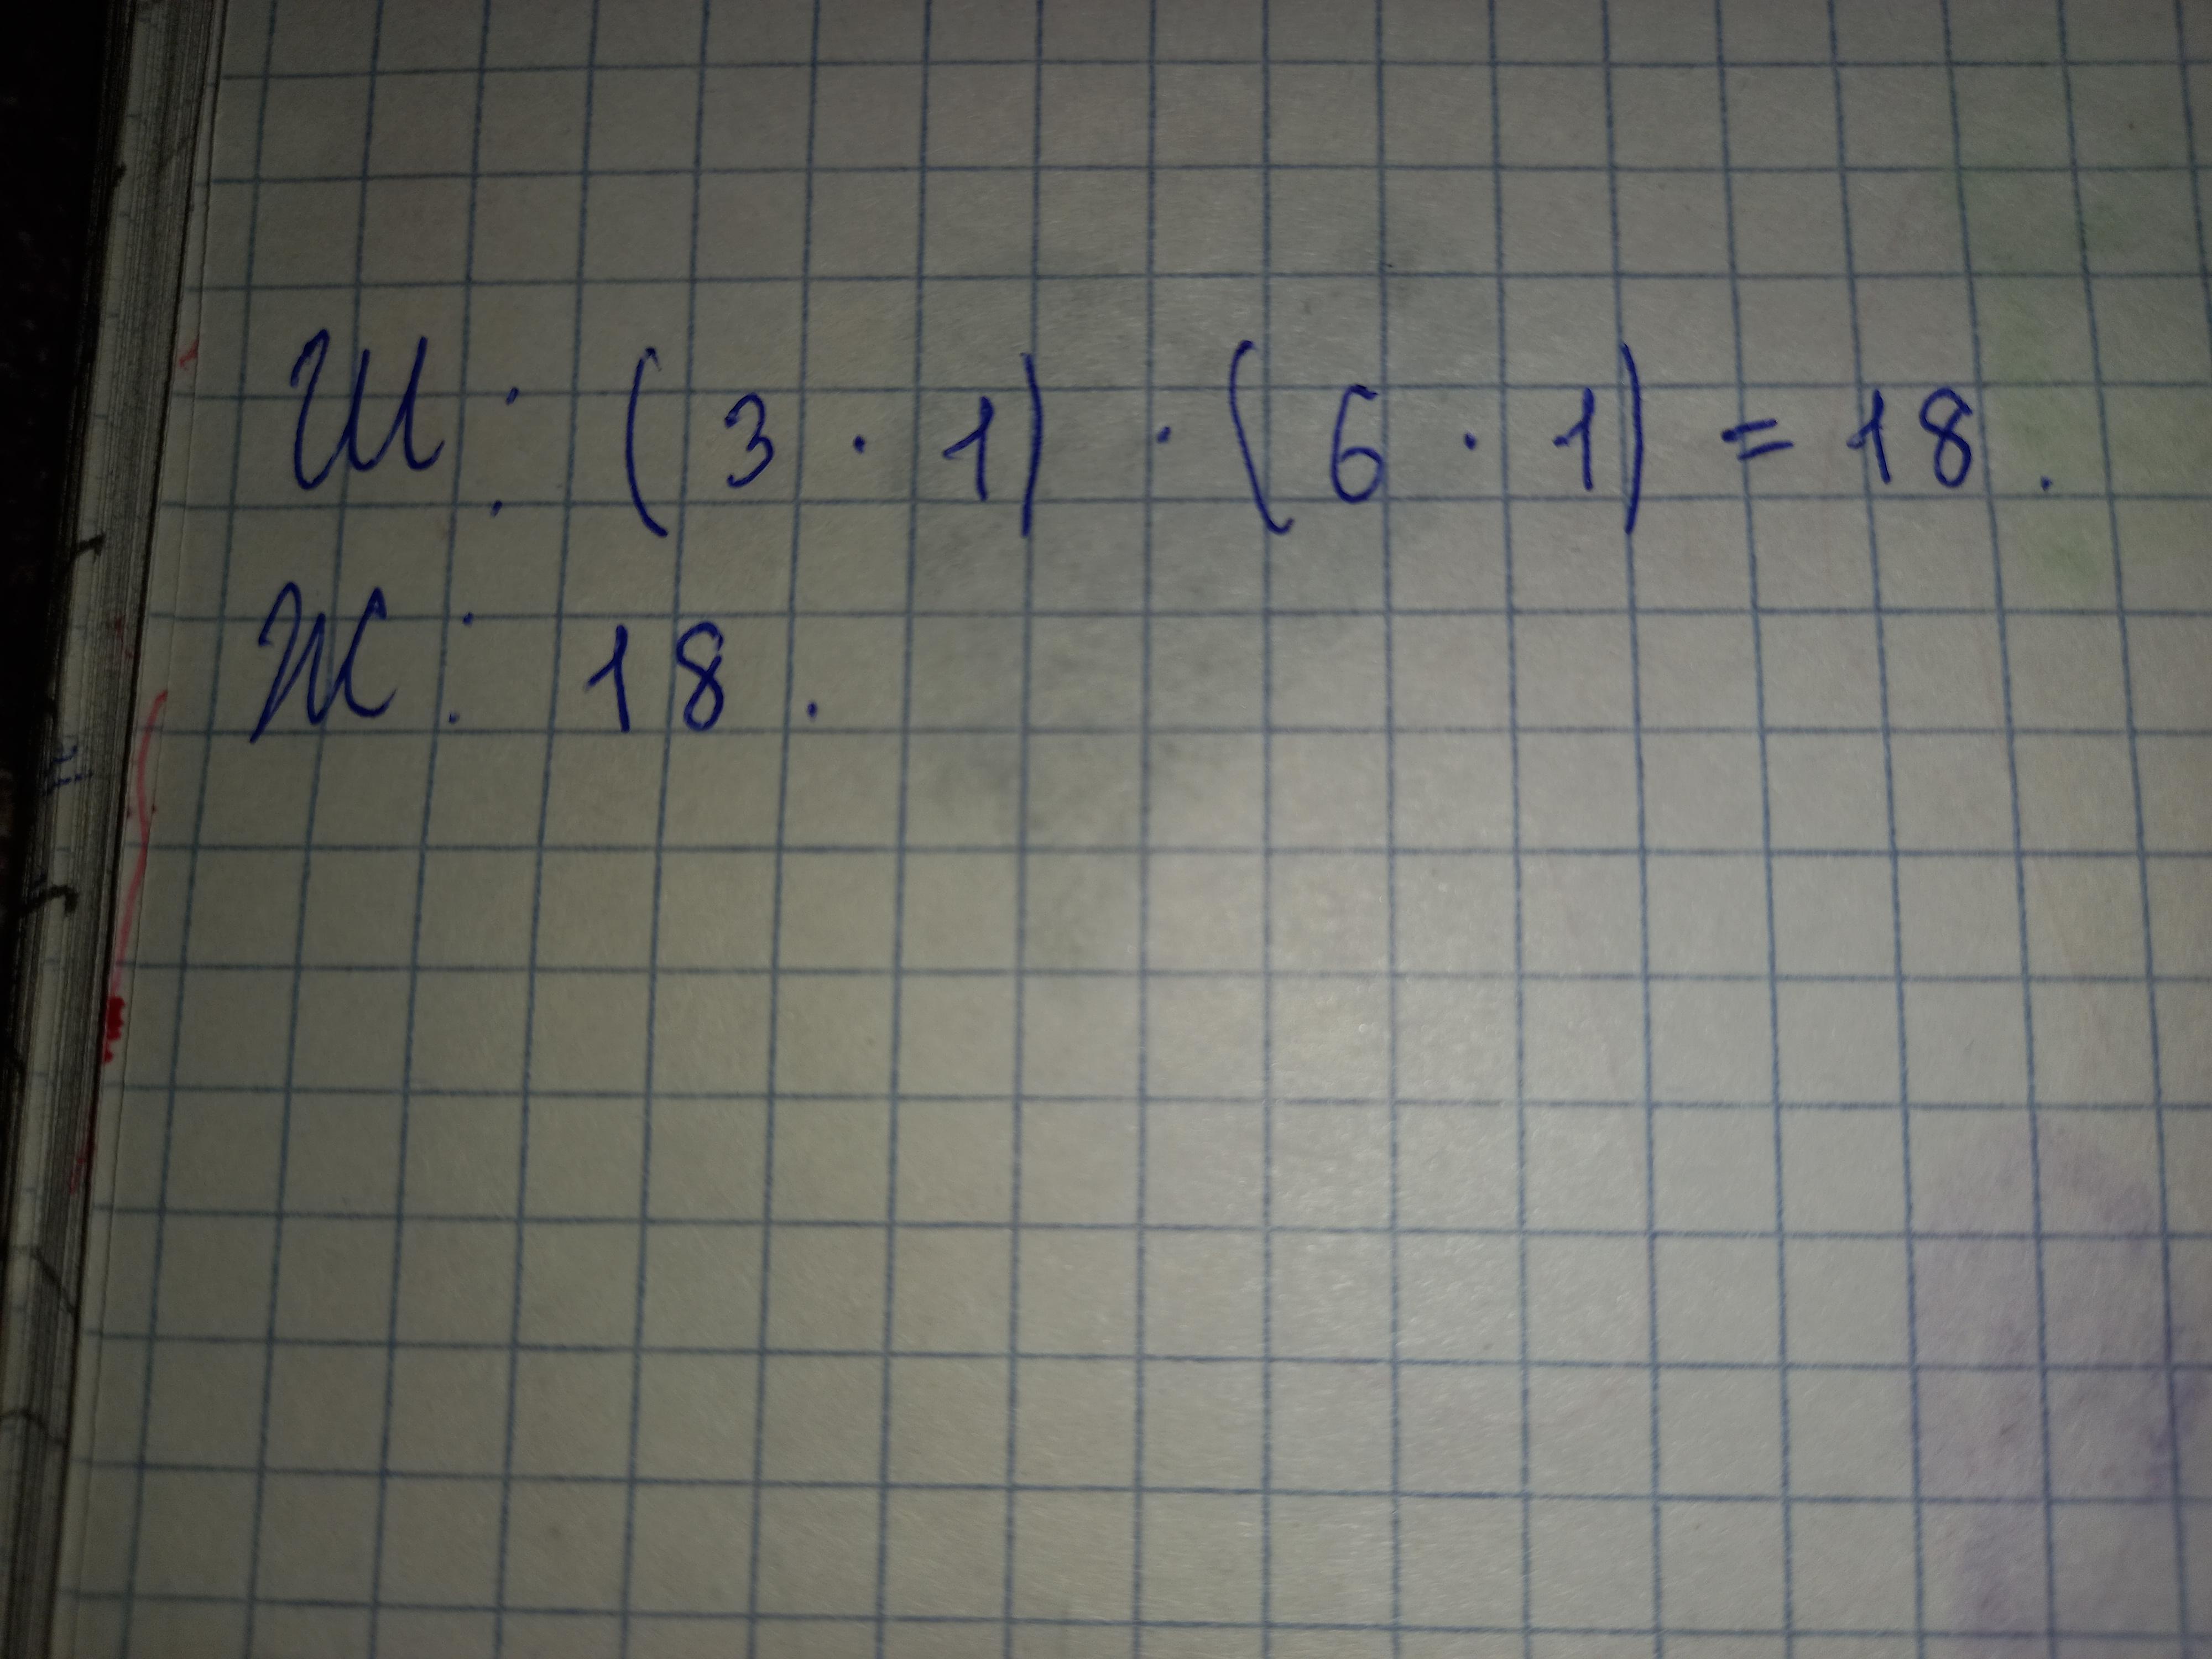 Ш: (3 · 1) · (6 · 1) = 18.
Ж: 18.